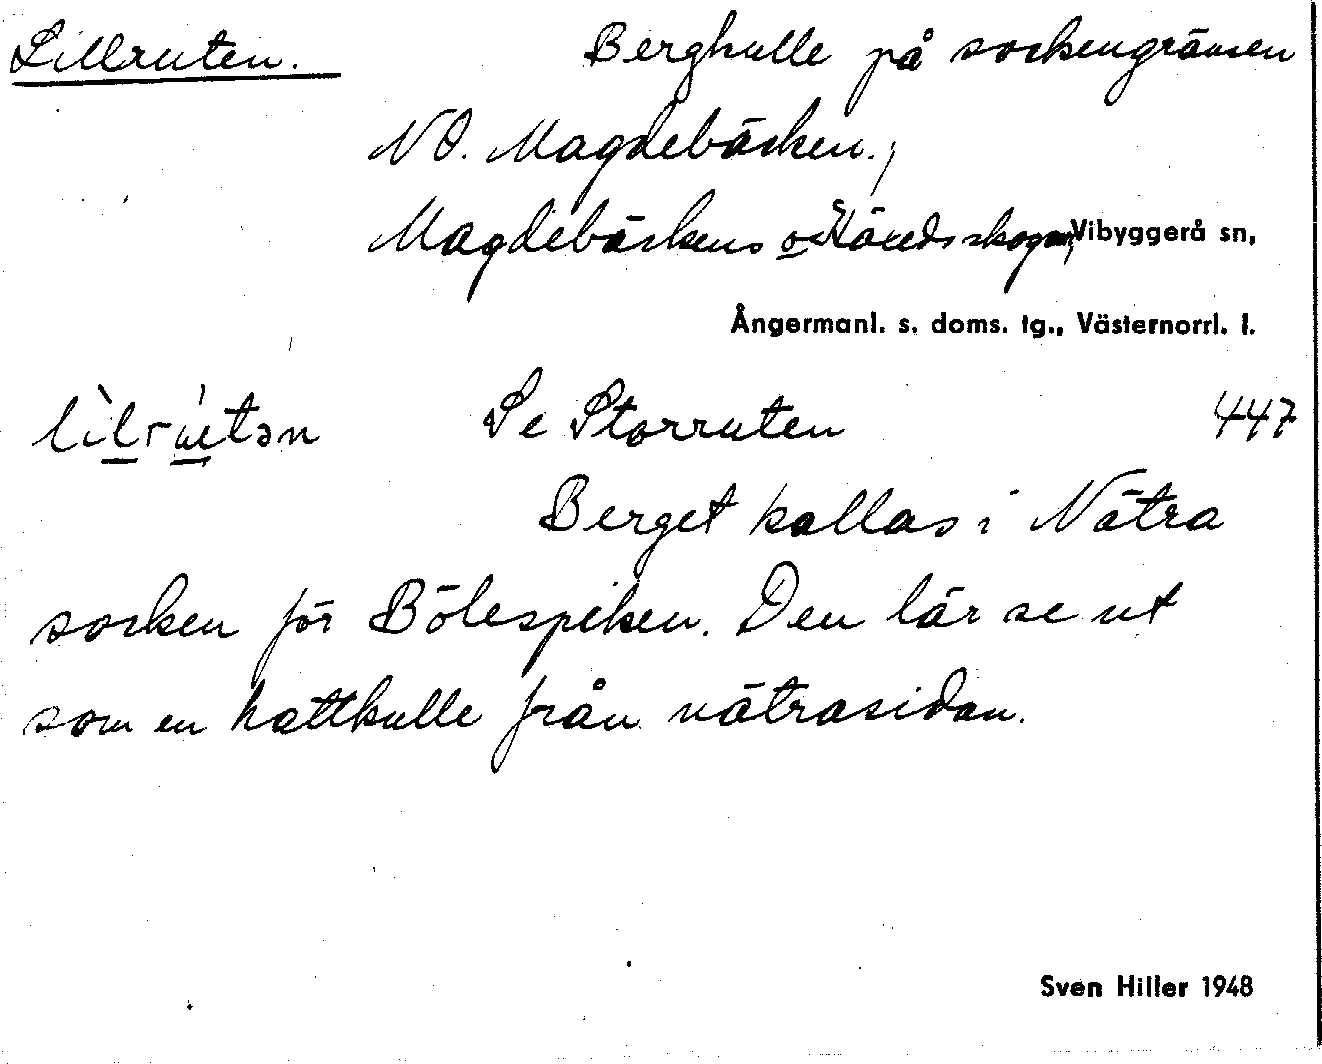 Lillruten. Berghulle på sockengränsen
NO. Magdebäcken.,
Magdebäckens o. skogar, Vibyggerå sn,
Ångermanl. s. doms. tg., Västernorrl. l.
lìlrútən Se Storruten 447
Berget kallas i Nätra
socken för Bölespiken. Den lär se ut
som en hattkulle från nätrasidan.
Sven Hiller 1948